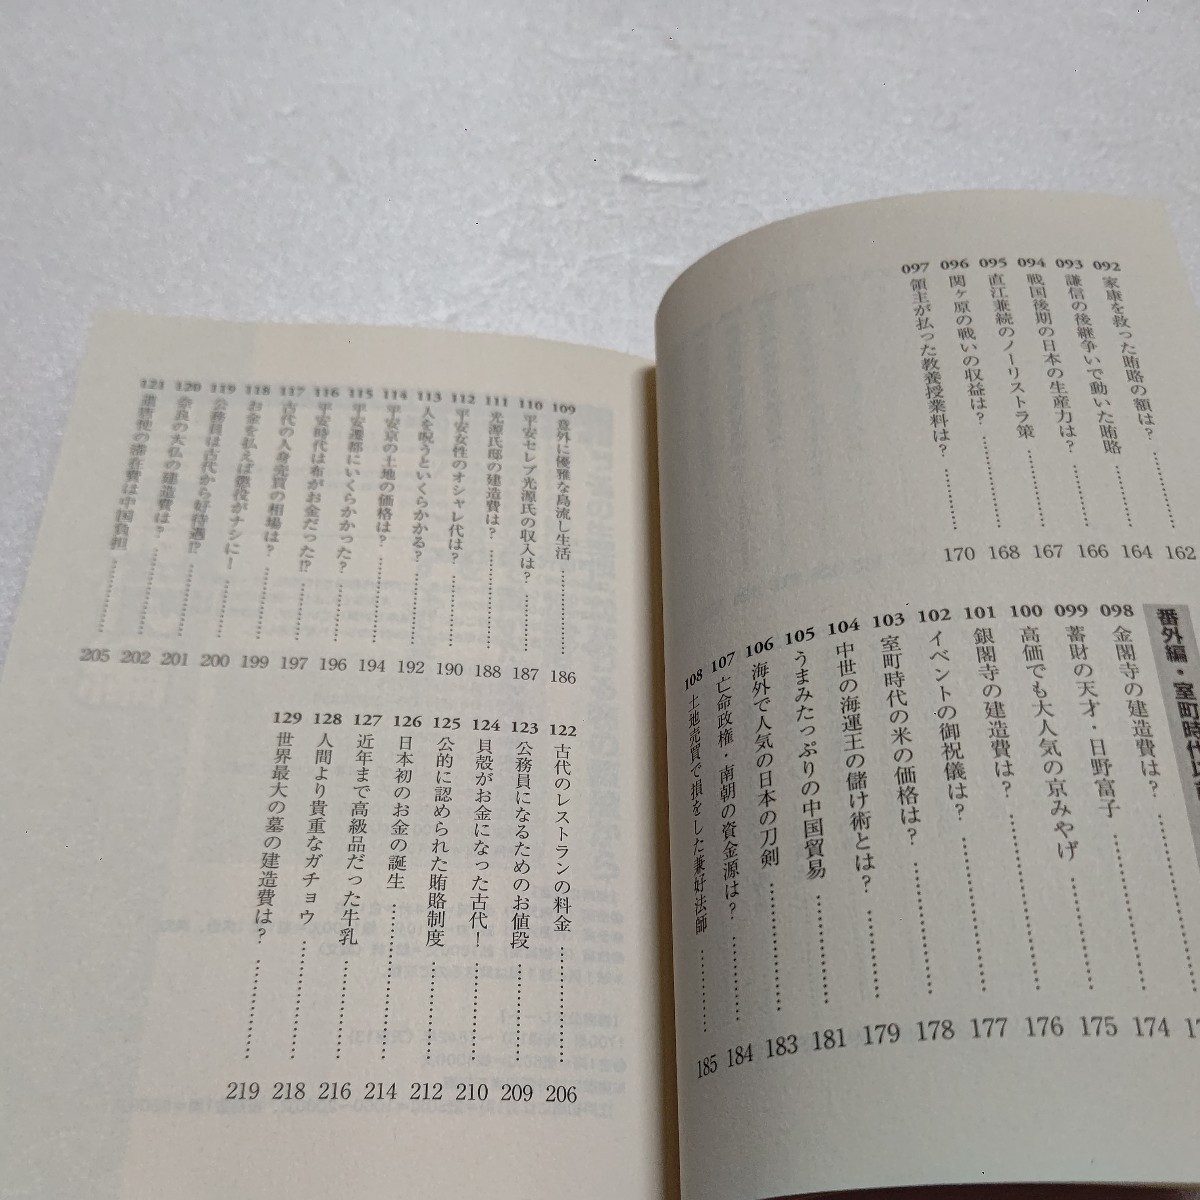 092 家康を救った賄賂の額は?………162
093 謙信の後継争いで動いた賄賂………164
094 戦国後期の日本の生産力は?………166
095 直江兼続のノーリストラ策………167
096 関ヶ原の戦いの収益は?………168
097 領主が払った教養授業料は?………170
番外編・室町時代以前
098 金閣寺の建造費は?………174
099 蓄財の天才・日野富子………175
100 高価でも大人気の京みやげ………176
101 銀閣寺の建造費は?………177
102 イベントの御祝儀は?………178
103 室町時代の米の価格は?………179
104 中世の海運王の儲け術とは?………181
105 うまみたっぷりの中国貿易………183
106 海外で人気の日本の刀剣………184
107 亡命政権・南朝の資金源は?………185
108 土地売買で損をした兼好法師………
109 意外に優雅な島流し生活………186
110 平安セレブ光源氏の収入は?………187
111 光源氏邸の建造費は?………188
112 平安女性のオシャレ代は?………190
113 人を呪うといくらかかる?………192
114 平安京の土地の価格は?………194
115 平安遷都にいくらかかった?………196
116 平安時代は布がお金だった!?………197
117 古代の人身売買の相場は?………199
118 お金を払えば懲役がナシに!………200
119 公務員は古代から好待遇!?………201
120 奈良の大仏の建造費は?………202
121 遣唐使の滞在費は中国負担………205
122 古代のレストランの料金………206
123 公務員になるためのお値段………209
124 貝殻がお金になった古代!………210
125 公的に認められた賄賂制度………212
126 日本初のお金の誕生………214
127 近年まで高級品だった牛乳………216
128 人間より貴重なガチョウ………218
129 世界最大の墓の建造費は?………219